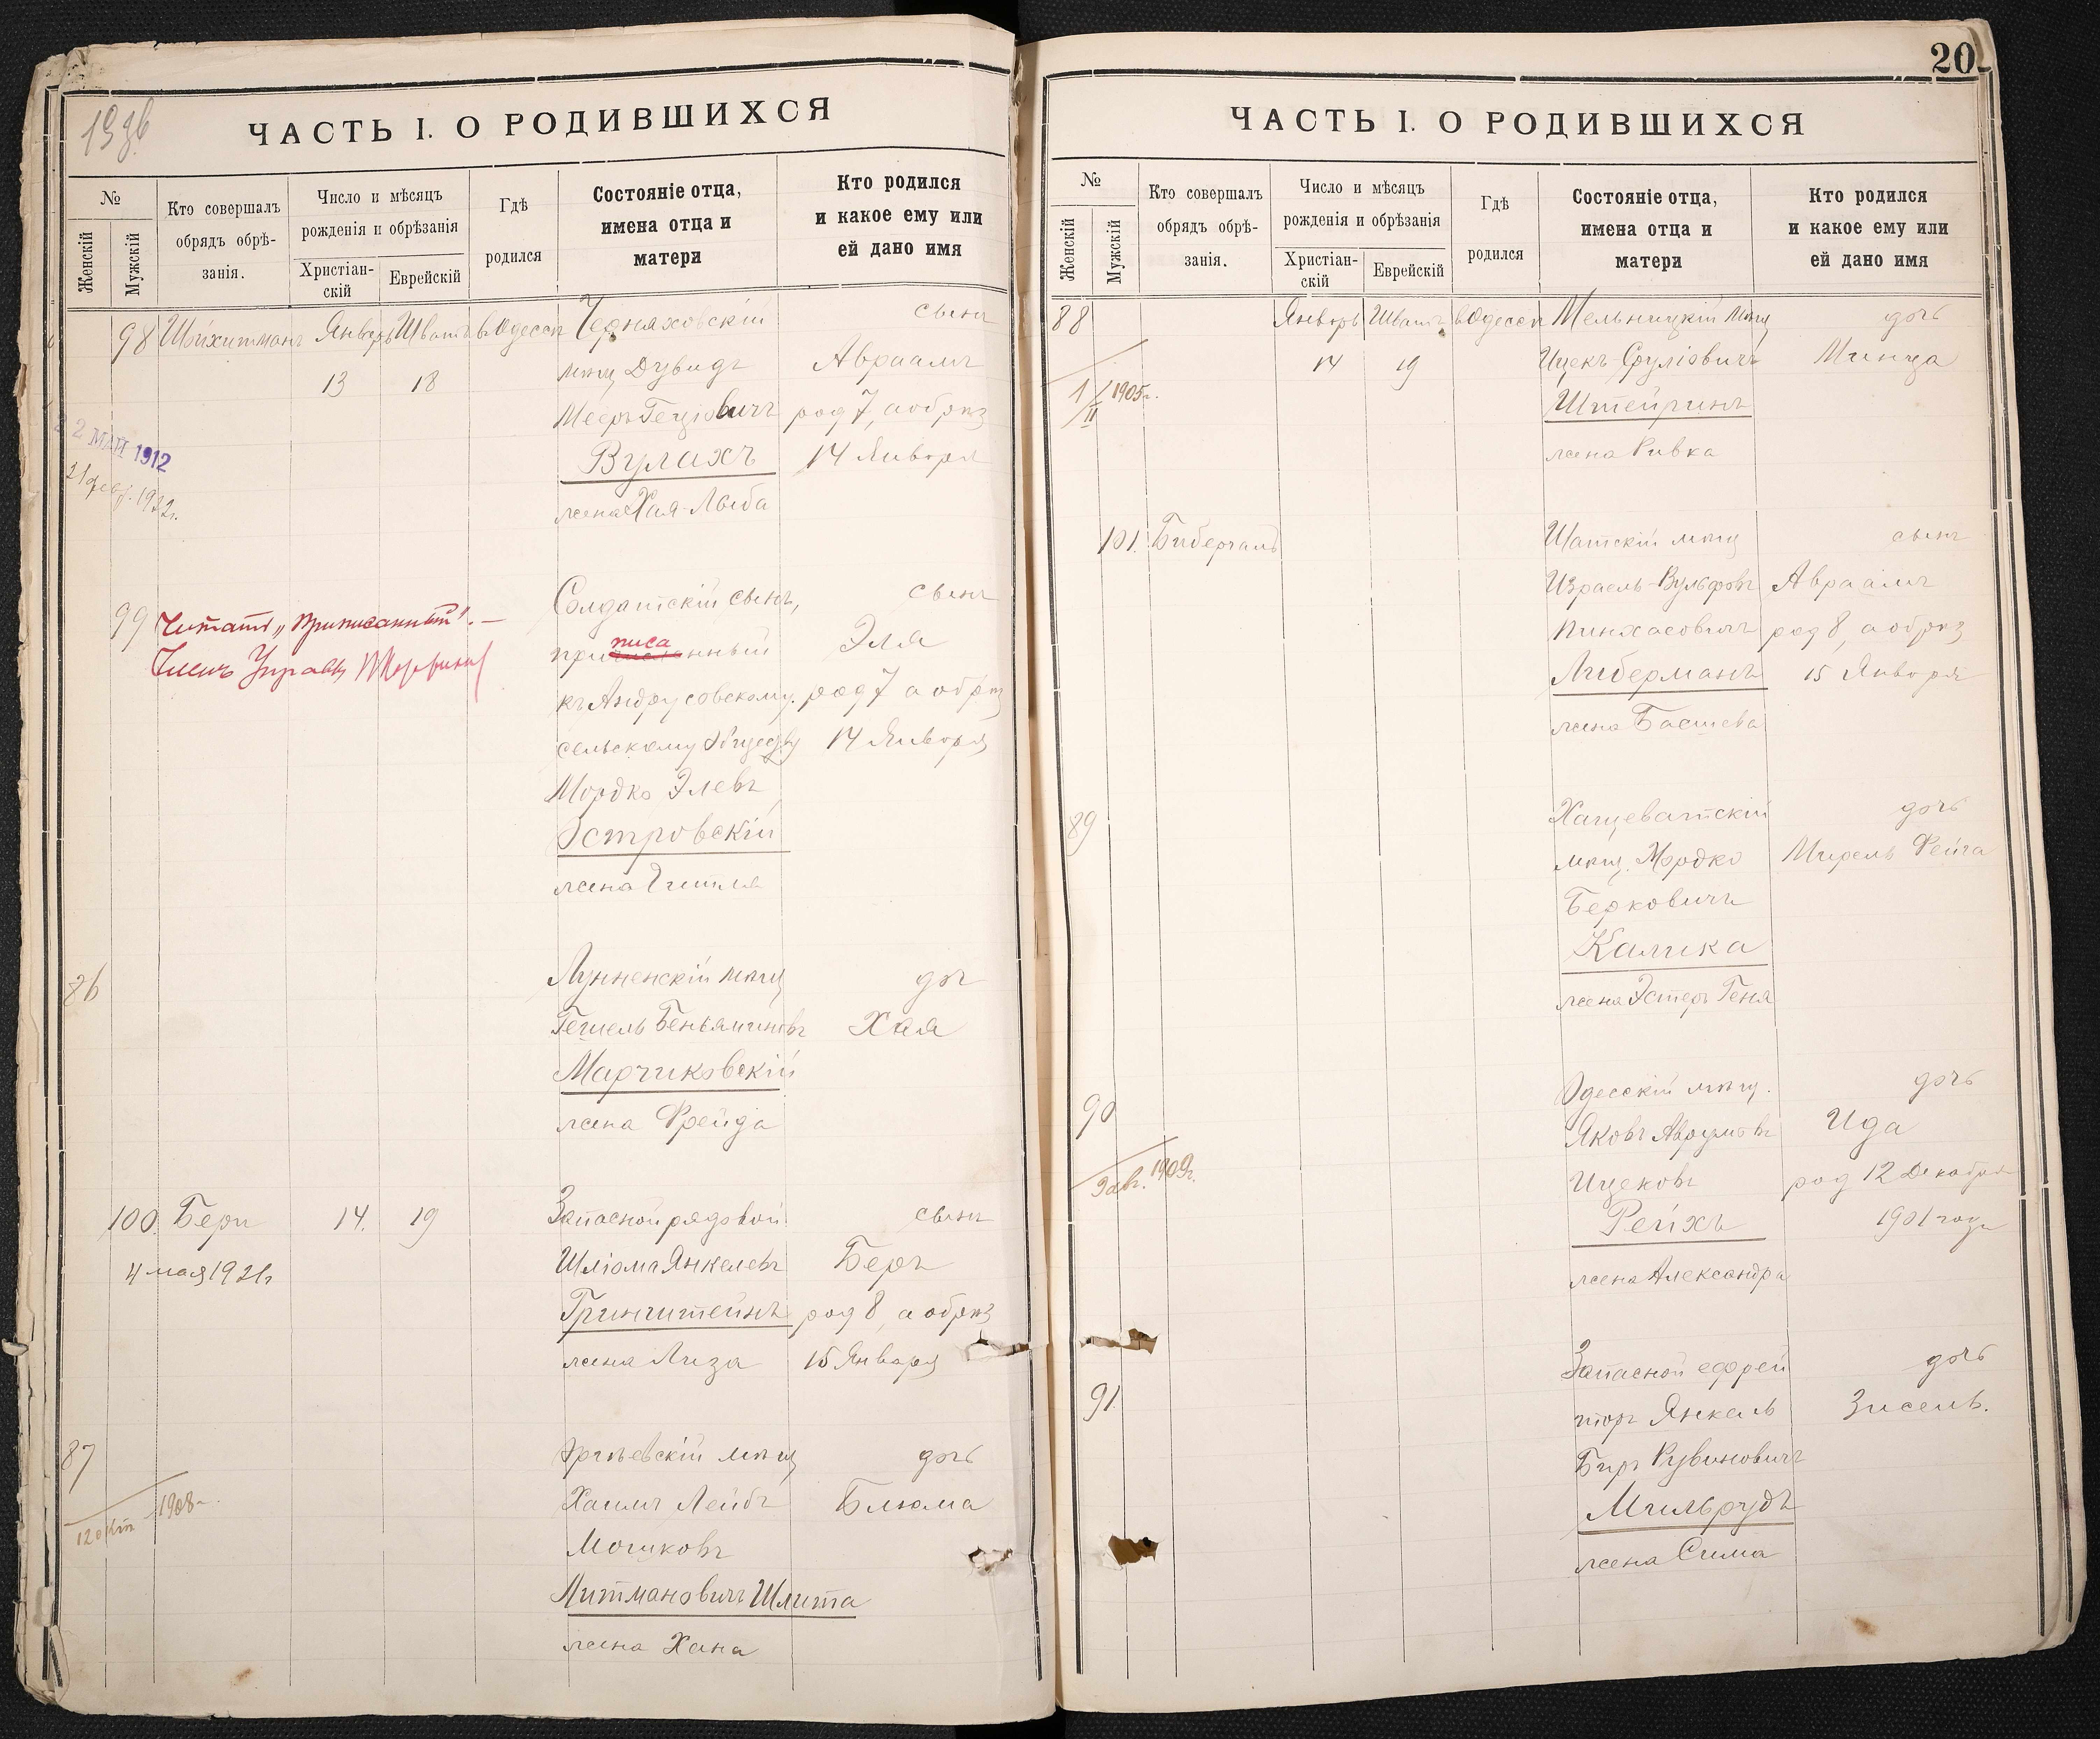 ЧАСТЬ I. О РОДИВШИХСЯ
№
Женскій
Мужскій
Кто совершалъ
обрядъ обрѣ-
занія.
Число и мѣсяцъ
рожденія и обрѣзанія
Христіан-
скій
Еврейскій
Гдѣ
родился
Состояніе отца,
имена отца и
матери
Кто родился
и какое ему или
ей дано имя
98 Январь Шватъ въ Одессѣ Черняховскій сынъ
13 18 мѣщ Дувидъ Авраамъ
Мееръ род 7, а обрѣз
Вулахъ 14 Января
жена Хая-Люба
2 МАЙ 1912
99 Солдатскій сынъ, сынъ
Читать „приписанный".
Членъ Управы
писа
нный Эля
къ Андрусовскому род 7 а обрѣз
сельскому обществу 14 Января
Мордко Элевъ
Островскій
жена Гитля
86 Лунненскій мѣщ доч
Гешель Беньяминовъ Хая
Марчиковскій
жена Фрейда
100 Бери 14. 19 Запасной рядовой сынъ
4 мая 1921г Шліома Янкелевъ Беръ
Гринштейнъ род 8, а обрѣз
жена Лиза 15 Января
87 мѣщ дочь
1908г. Хаимъ Лейбъ Блюма
12 окт Мошковъ
Литмановичъ Шлита
жена Хана
20
ЧАСТЬ I. О РОДИВШИХСЯ
№
Женскій
Мужскій
Кто совершалъ
обрядъ обрѣ-
занія.
Число и мѣсяцъ
рожденія и обрѣзанія
Христіан-
скій
Еврейскій
Гдѣ
родился
Состояніе отца,
имена отца и
матери
Кто родился
и какое ему или
ей дано имя
88 Январь Шватъ въ Одессѣ Мельницкій мѣщ дочь
14 19 Ицекъ-Сруліовичъ Минца
1/II 1905г. Штейринъ
жена Ривка
101. Биберталь Шатскій мѣщ сынъ
Израель-Вульфовъ Авраамъ
Пинхасовичъ род 8, а обрѣз
Либерманъ 15 Января
жена Басшева
89 Хащеватскій дочь
мѣщ. Мордко Мирель Фейга
Берковичъ
Калика
жена Эстеръ Геня
90 Одесскій мѣщ. дочь
Яковъ Аврумовъ Ида
9 авг. 1909г. Ицековъ род 12 Декабря
Рейхъ 1901 года
жена Александра
91 Запасной ефрей дочь
торъ Янкель Зисель.
Беръ Рувиновичъ
Мильрудъ
жена Сима